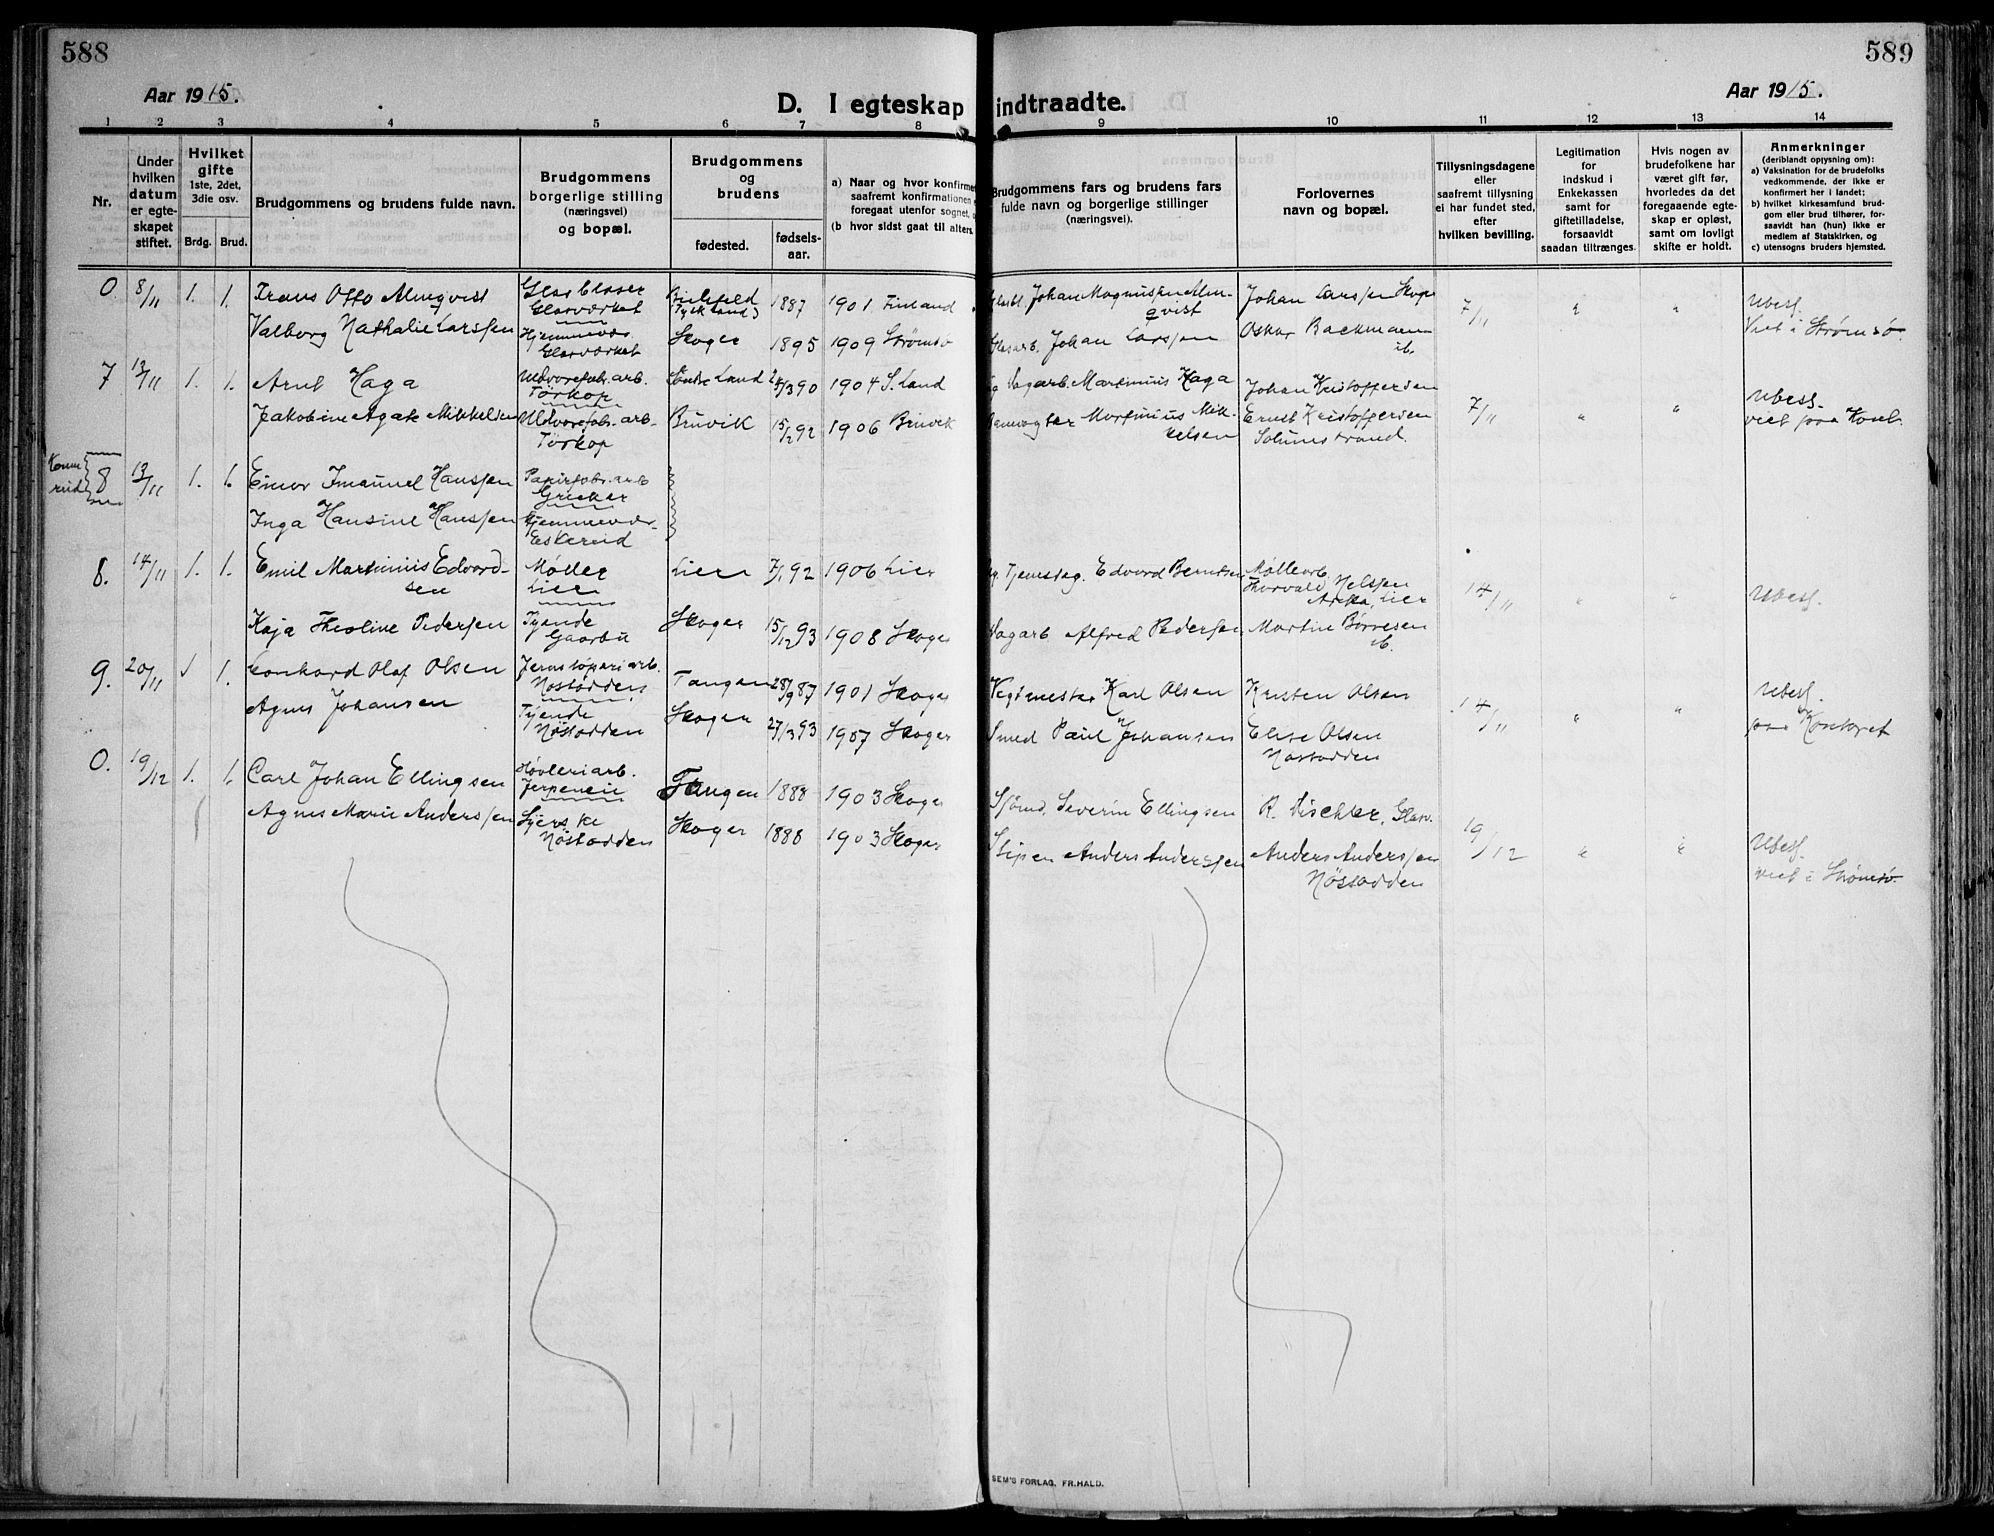 588
589
Aar 1915.
Aar 1915.
D. I egteskap indtraadte.
1 2 3 4 5 6 7 8 9 10 11 12 13 14
Nr.
Under
hvilken
datum
er egte-
skapet
stiftet.
Hvilket
gifte
1ste, 2det,
3die osv.
Brdg. Brud.
Brudgommens og brudens fulde navn.
Brudgommens
borgerlige stilling
(næringsvei)
og bopæl.
Brudgommens
og
brudens
fødested.
fødsels-
aar.
a) Naar og hvor konfirmer
saafremt konfirmationen
foregaat utenfor sognet,
(b hvor sidst gaat til alters.
Brudgommens fars og brudens fars
fulde navn og borgerlige stillinger
(næringsvei).
Forlovernes
navn og bopæl.
Tillysningsdagene
eller
saafremt tillysning
ei har fundet sted,
efter
hvilken bevilling.
Legitimation
for
indskud i
Enkekassen
samt for
giftetilladelse,
forsaavidt
saadan tiltrænges.
Hvis nogen av
brudefolkene har
været gift før,
hvorledes da det
foregaaende egte-
skap er opløst,
samt om lovligt
skifte er holdt.
Anmerkninger
(deriblandt opjysning om):
a) Vaksination for de brudefolks
vedkommende, der ikke er
konfirmert her i landet;
b) hvilket kirkesamfund brud-
gom eller brud tilhører, for-
saavidt han (hun) ikke er
medlem af Statskirken, og
c) utensogns bruders hjemsted.
0 8/11 1. 1. Frans Otto Almqvist
Glasblaser
Glasværket
1887 1901 Finland
Johan Magnussen Alm-
qvist
Johan Larssen Skoger
7/11 " "
Ubesl.
Viet i Strømsø.
Valborg Nathalie Larssen
Hjemmevær
Glasværket
Skoger 1895 1909 Strømsø
Glasarb. Johan Larssen
Oskar Backmann
ib.
7 13/11 1. 1. Arnt Haga
Uldvarefabr. arb.
Tørkop
Søndre Land 2/3 90 1904 S. Land
Sagarb. Martinius Haga
Johan Kristoffersen
7/11 " "
Ubesl.
viet paa Kont.
Jakobine Agate Mikkelsen
Uldvarefabr. arb.
Tørkop
Bruvik 15/2 92 1906 Bruvik
Martinius Mik-
kelsen
Ernst Kristoffersen
Solumstrand.
Konne
rud
8 13/11 1. 1. Einar Imanuel Hanssen
Papirfabr. arb
Inga Hansine Hanssen
Hjemmevær.
Eskerud
8. 14/11 1. 1. Emil Martinius Edvard-
sen
Møller
Lier
Lier 7/1 92 1906 Lier
Edvard Berntsen
Møllearb.
Thorvald Nelssen
Lier
14/11 " "
Ubesl.
Kaja Theoline Pedersen
Tjende
Gaarbu
Skoger 15/12 93 1908 Skoger
Sagarb Alfred Pedersen
Martin Børresen
ib.
9. 20/11 1 1. Leonhard Olaf Olsen
Jernstøperiarb.
Nøstodden
Tangen 28/9 87 1901 Skoger
Vegtmester Karl Olsen
Karsten Olsen
14/11 " "
Ubesl.
paa Kontoret
Agnes Johansen
Tjende
Nøstodden
Skoger 27/3 93 1907 Skoger
Smed Paul Johansen
Elise Olsen
Nøstodden
0. 19/12 1. 1. Carl Johan Ellingsen
Høvleriarb.
Tangen 1888 1903 Skoger
Sjømd. Severin Ellingsen
R. Tischler, Glasv.
19/12 " "
Ubesl.
viet i Strømsø.
Agnes Marie Anderssen
Syerske
Nøstodden
Skoger 1888 1903 Skoger
Anders Anderssen
Anders Anderssen
Nøstodden
SEM'S FORLAG, FR. HALD.